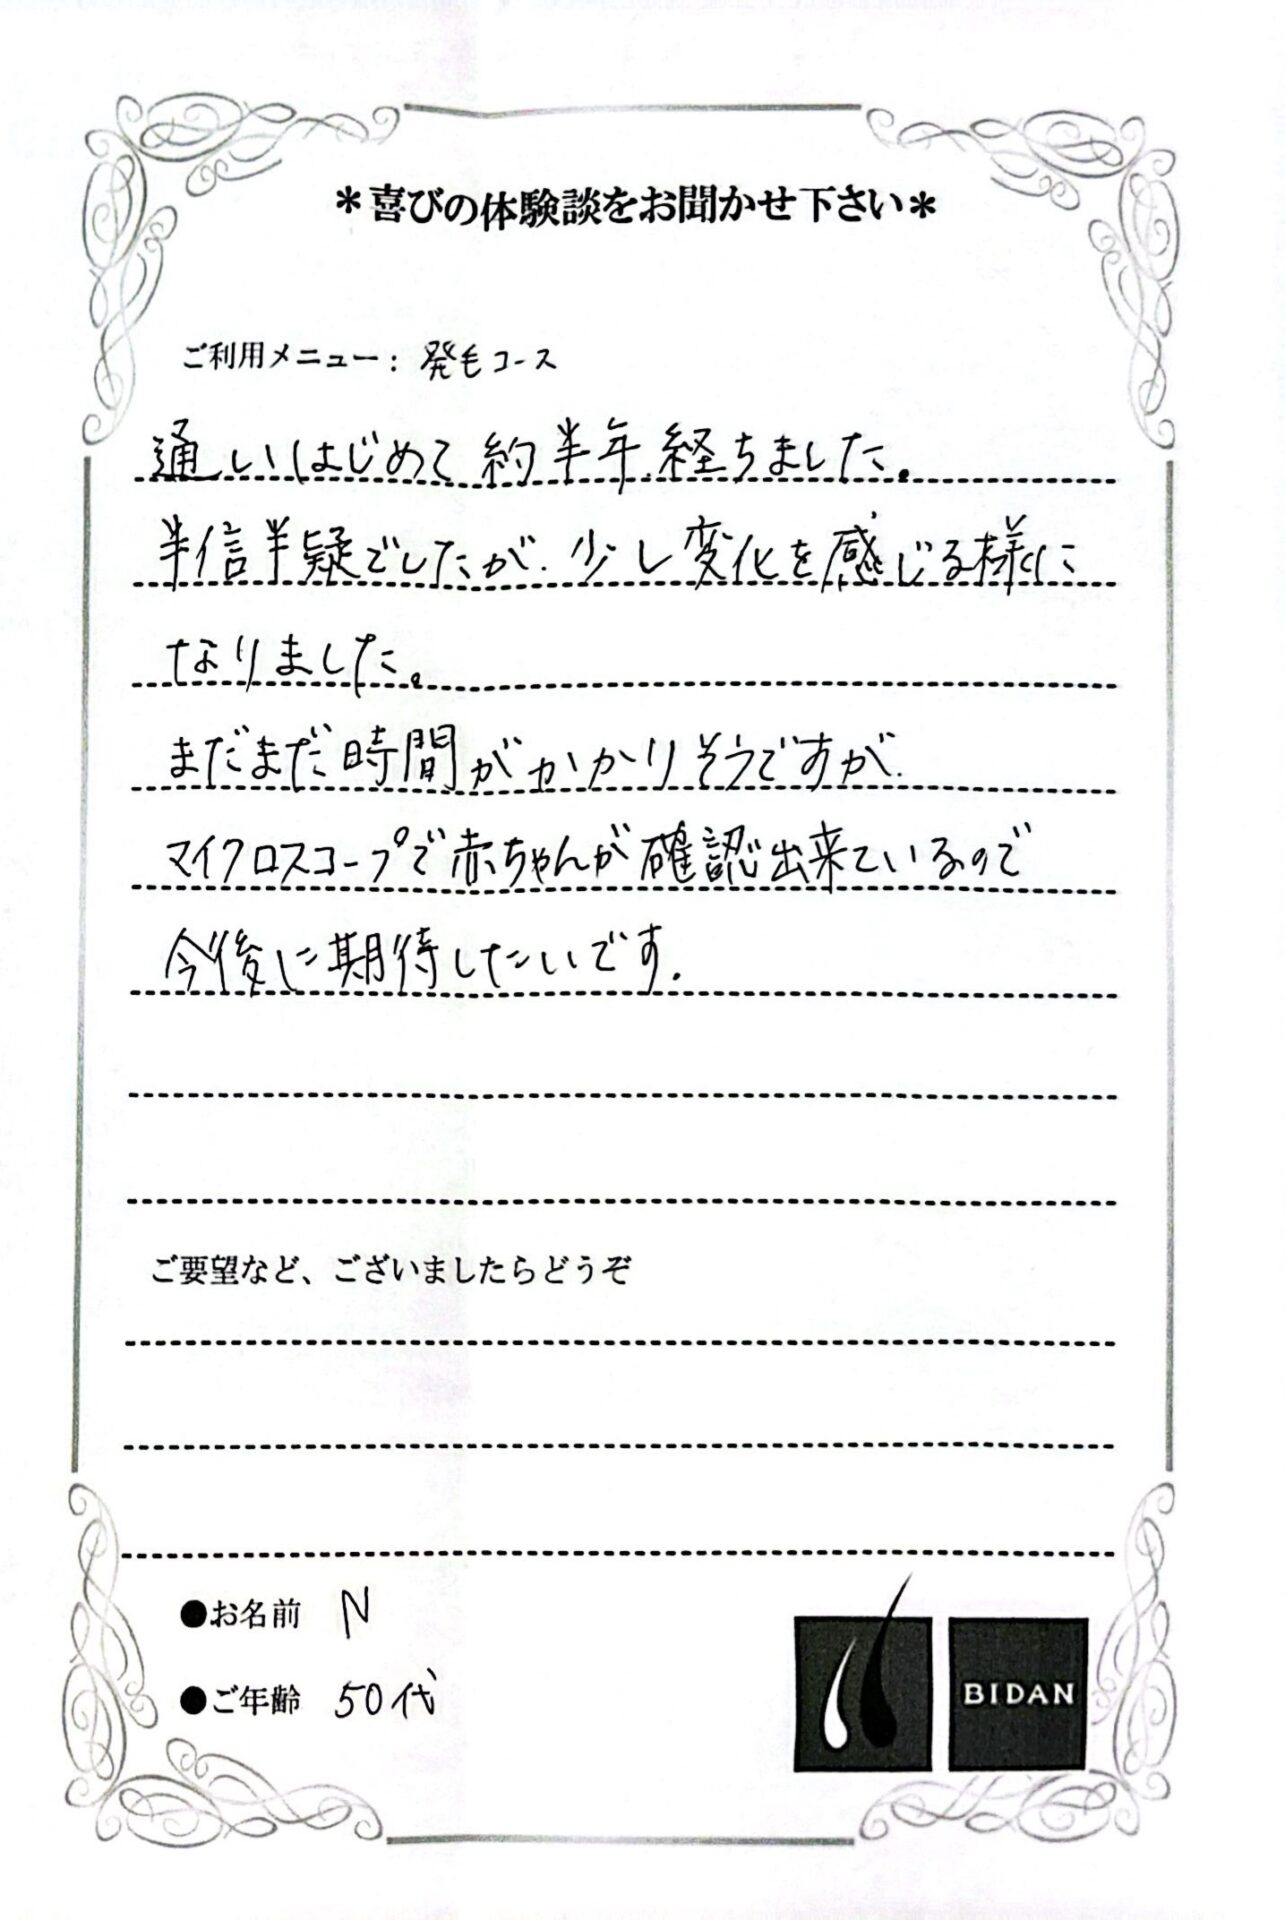 ＊喜びの体験談をお聞かせ下さい＊
ご利用メニュー：発毛コース
通いはじめて約半年経ちました。
半信半疑でしたが、少し変化を感じる様に
なりました。
まだまだ時間がかかりそうですが、
マイクロスコープで赤ちゃんが確認出来ているので
今後に期待したいです。
ご要望など、ございましたらどうぞ
●お名前 N
●ご年齢 50代
BIDAN